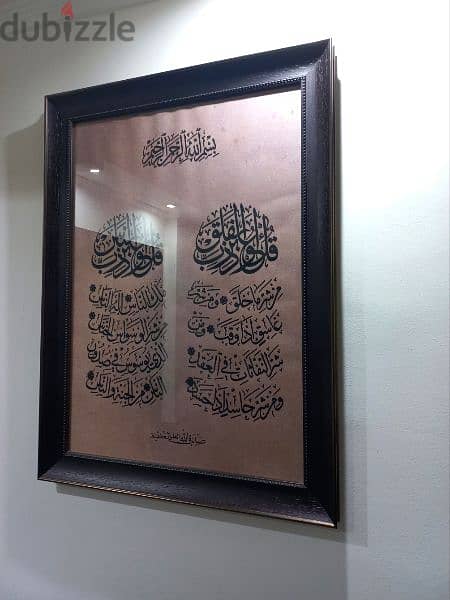 dubizzle
بسم الله الرحمن الرحيم
قل أعوذ برب الفلق
من شر ما خلق ومن شر
غاسق إذا وقب ومن
شر النفاثات في العقد
ومن شر حاسد إذا حسد
قل أعوذ برب الناس
ملك الناس إله الناس
من شر الوسواس الخناس
الذي يوسوس في صدور
الناس من الجنة والناس
صدق الله العلي العظيم